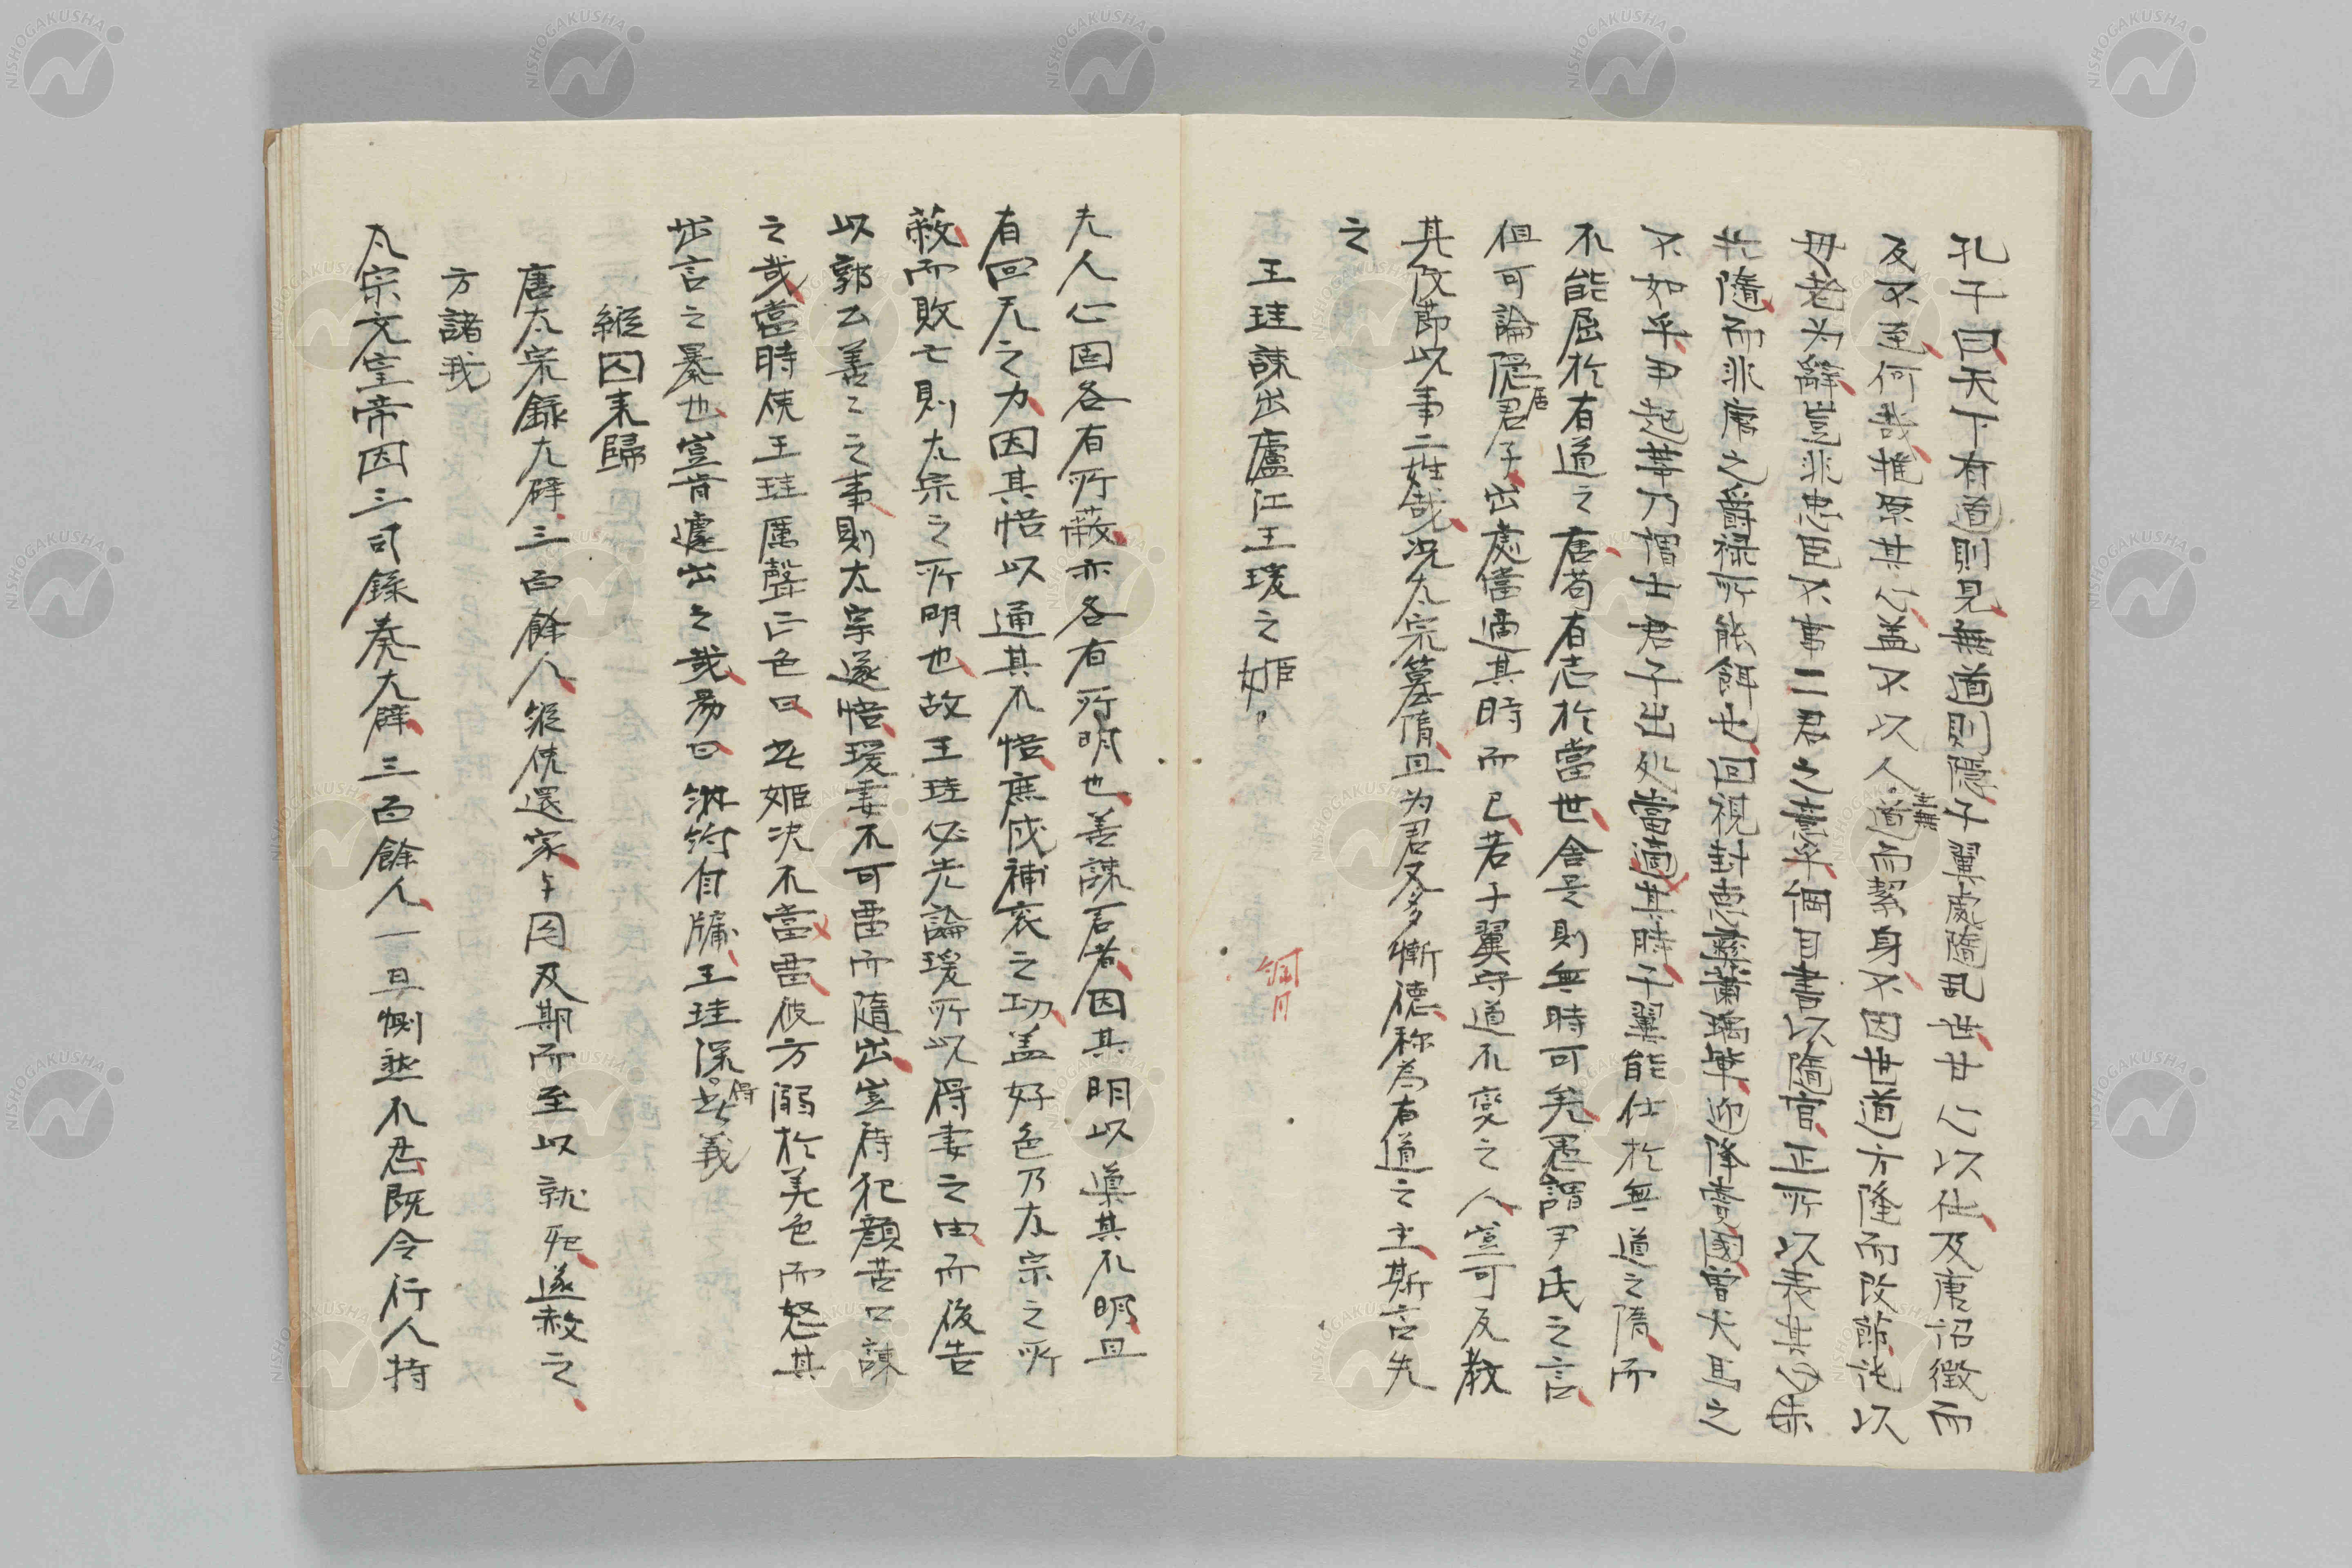 孔子曰天下有道則見無道則隱子翼處隋乱世甘心以仕及唐招徵而
反不至何哉推原其心盖不以人主無道而絜身不因世道方隆而改節徒以
母老为辭豈非忠臣不事二君之意乎個目書以隋官正所以表其心未
共隋而非唐之爵祿所能餌也回視封德彝蕭瑀輩迎降賣國曾犬馬之
不如乎尹起莘乃謂士君子出処當適其時子翼能仕於無道之隋而
不能屈於有道之唐苟有志於當世舍是則無時可矣愚謂尹氏之言
但可論隱居君子出處當適其時而已若子翼守道不變之人豈可反教
其改節以事二姓哉况太宗簒隋且为君又多慚德称為有道之主斯言先
之
王珪諫出廬江王瑗之姬
佩月
夫人心固各有所蔽亦各有所明也善諫君者因其明以導其不明且
有回天之力因其悟以通其不悟庶成補袞之功盖好色乃太宗之所
蔽而敗亡則太宗之所明也故王珪必先論瑗所以得妻之由而後告
以郭公善善之事則太宗遂悟瑗妻不可畱而隨出豈待犯顏苦口諫
之哉當時使王珪厲聲正色曰此姬决不當畱彼方溺於美色而怒其
出言之暴也豈肯遽出之哉易曰納約自牖王珪深得此義
縱囚来歸
唐太宗錄大辟三百餘人縱使還家与囚及期而至以就死遂赦之
方諸我
太宗文皇帝因三司錄奏大辟三百餘人一旦惻然不忍既令行人持